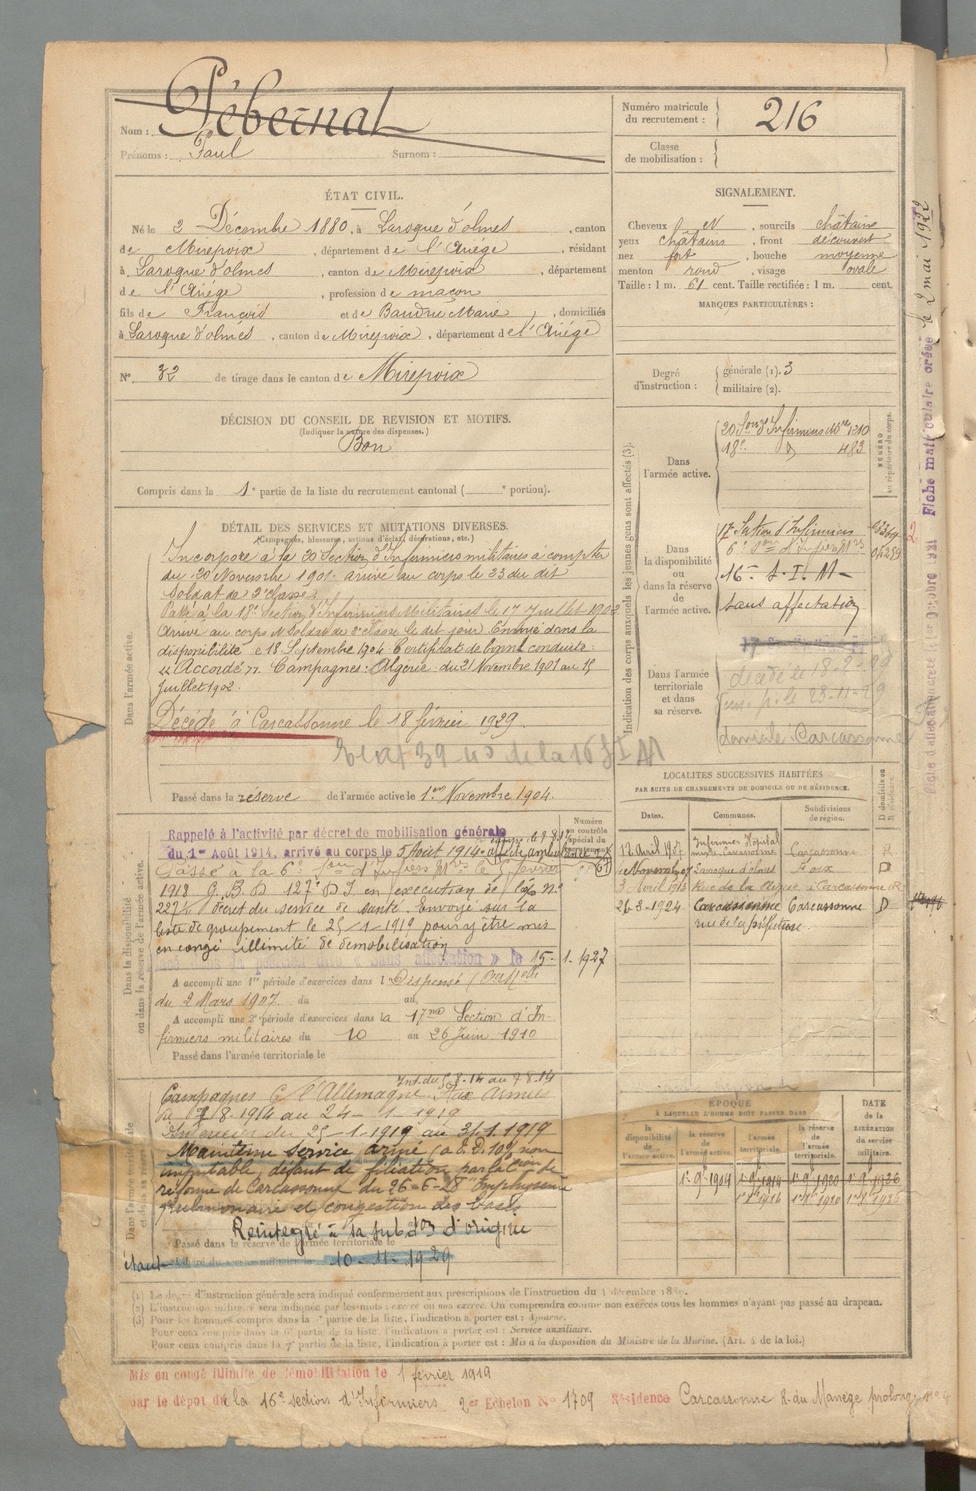 Nom : Pébernat
Prénoms : Paul Surnom :
Numéro matricule du recrutement : 216
Classe de mobilisation :
ÉTAT CIVIL.
Né le 2 Décembre 1880, à Laroque d'olmes, canton
de Mirepoix, département de l'Ariége, résidant
à Laroque d'olmes, canton de Mirepoix, département
de l'Ariége, profession de maçon
fils de François et de Baudru Marie, domiciliés
à Laroque d'olmes, canton de Mirepoix, département de l'Ariége
N° 32 de tirage dans le canton de Mirepoix
SIGNALEMENT.
Cheveux N, sourcils châtains
yeux châtains, front découvert
nez fort, bouche moyenne
menton rond, visage ovale
Taille : 1 m. 61 cent. Taille rectifiée : 1 m. cent.
MARQUES PARTICULIÈRES :
Degré d'instruction : générale (1). 3
militaire (2).
DÉCISION DU CONSEIL DE REVISION ET MOTIFS.
(Indiquer la nature des dispenses.)
Bon
Compris dans la 1e partie de la liste du recrutement cantonal ( e portion).
DÉTAIL DES SERVICES ET MUTATIONS DIVERSES.
(Campagnes, blessures, actions d'éclat, décorations, etc.)
Dans l'armée active.
Incorporé à la 20 Section d'Infirmiers militaires à compter
du 20 Novembre 1901 arrivé au corps le 23 du dit
Soldat de 2e classe.
Passé à la 18e Section d'Infirmiers Militaires le 17 Juillet 1902
Arrivé au corps Soldat de 2e classe le dit jour Envoyé dans la
disponibilité le 18 Septembre 1904 Certificat de bonne conduite
"Accordé". Campagnes : Algérie du 21 Novembre 1901 au 15
Juillet 1902.
Décédé à Carcassonne le 18 février 1929.
de la 16 S I M
Passé dans la réserve de l'armée active le 1er Novembre 1904.
Indication des corps auxquels les jeunes gens sont affectés (3).
NUMÉRO au répertoire du corps.
Dans l'armée active.
20 Son d'Infirmiers Mres 1210
18e d° 483
Dans la disponibilité ou dans la réserve de l'armée active.
17 Section d'Infirmiers
6e Son d'Infirmiers
16e S. I. M
Sans affectation
Dans l'armée territoriale et dans sa réserve.
décédé le 18-2-29
domicilé Carcassonne
LOCALITÉS SUCCESSIVES HABITÉES
PAR SUITE DE CHANGEMENTS DE DOMICILE OU DE RÉSIDENCE.
Dates. Communes. Subdivisions de région. D domicile ou R résidence.
12 avril 1907 Infirmier Hôpital Carcassonne Carcassonne R
Laroque d'olmes Foix D
3 Avril 1913 Rue de la Digue à Carcassonne R
26-3-1924 Carcassonne Carcassonne D
rue de la Préfecture
Dans la disponibilité ou dans la réserve de l'armée active.
Rappelé à l'activité par décret de mobilisation générale
du 1er Août 1914, arrivé au corps le 5 Août 1914
Passé à la 6e Son d'Infirmiers le 5 février
1918 G.B.D 127e D I en exécution de
Décret du service de santé. Envoyé sur la
liste de groupement le 25/1/1919 pour y être mis
en congé illimité de démobilisation
"Sans affectation" le 15-1-1927
Numéro au contrôle spécial du
A accompli une 1re période d'exercices dans l Dispensé
du 2 Mars 1907 du au
A accompli une 2e période d'exercices dans la 17me Section d'In-
firmiers militaires du 10 au 26 Juin 1910
Passé dans l'armée territoriale le
Dans l'armée territoriale et dans sa réserve.
Int. du 5-8-14 au 7-8-14
Campagnes C. l'Allemagne. Aux Armées
du 8/8/1914 au 24-1-1919
Intérieur du 25-1-1919 au 31.1.1919
Maintenu service armé (a I. D. 10% non
imputable, défaut de filiation, par la Con de
réforme de Carcassonne du 26-6-28 "Emphysème
pulmonaire et congestion des bases
Réintegré à sa subdon d'origine
Passé dans la réserve de l'armée territoriale le
Libéré du service militaire le 10-11-1929
ÉPOQUE À LAQUELLE L'HOMME DOIT PASSER DANS
la disponibilité de l'armée active. la réserve de l'armée active. l'armée territoriale. la réserve de l'armée territoriale.
DATE de la LIBÉRATION du service militaire.
(1) Le degré d'instruction générale sera indiqué conformément aux prescriptions de l'instruction du 4 décembre 1889.
(2) L'instruction militaire sera indiquée par les mots : exercé ou non exercé. On comprendra comme non exercés tous les hommes n'ayant pas passé au drapeau.
(3) Pour les hommes compris dans la 5e partie de la liste, l'indication à porter est : Ajourné.
Pour ceux compris dans la 6e partie de la liste, l'indication à porter est : Service auxiliaire.
Pour ceux compris dans la 7e partie de la liste, l'indication à porter est : Mis à la disposition du Ministre de la Marine. (Art. 4 de la loi.)
Mis en congé illimité de démobilisation le 1 février 1919
par le dépôt de la 16e section d'Infirmiers 2e Echelon N° 1709 Résidence Carcassonne R. du Manège prolongée
Fiche matriculaire créée le 2 mai 1922